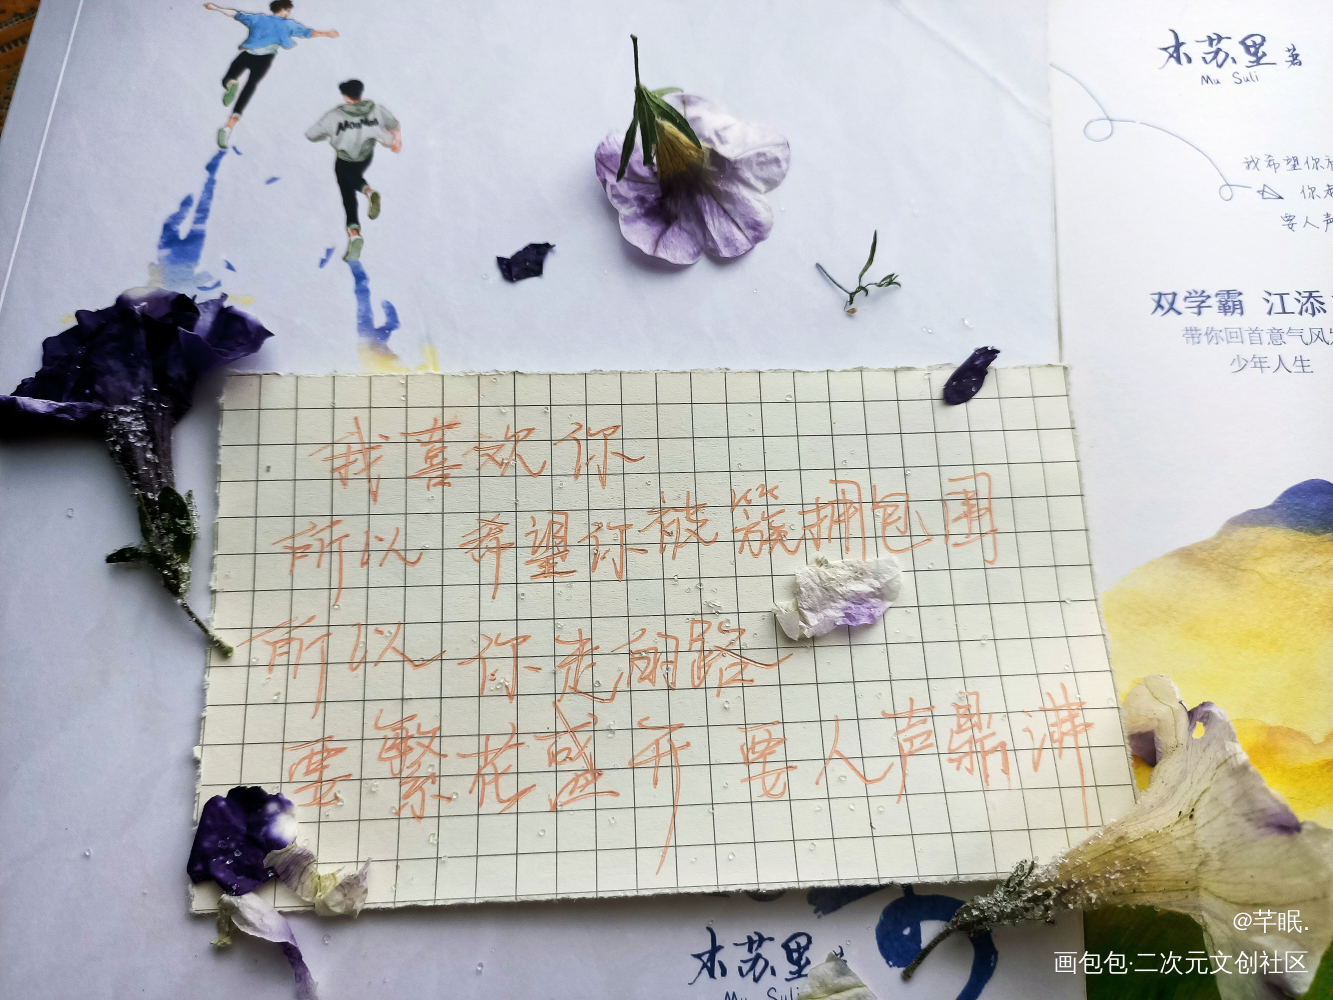 木苏里 著
Mu Suli
我希望你被
你走
要人声
双学霸 江添
带你回首意气风发
少年人生
我喜欢你
所以希望你被簇拥包围
所以你走的路
要繁花盛开 要人声鼎沸
木苏里
Mu Suli
@芊眠.
画包包·二次元文创社区